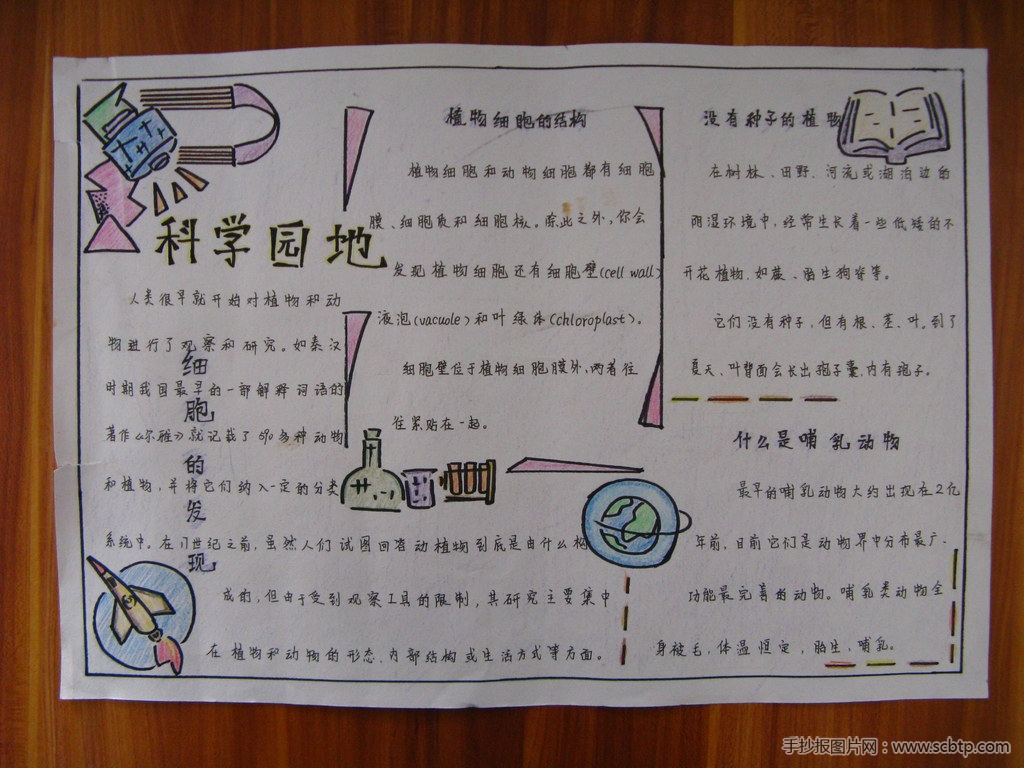 科学园地
细胞的发现
人类很早就开始对植物和动
物进行了观察和研究。如秦汉
时期我国最早的一部解释词语的
著作《尔雅》就记载了590多种动物
和植物,并将它们纳入一定的分类
系统中。在17世纪之前,虽然人们试图回答动植物到底是由什么构
成的,但由于受到观察工具的限制,其研究主要集中
在植物和动物的形态、内部结构或生活方式等方面。
植物细胞的结构
植物细胞和动物细胞都有细胞
膜、细胞质和细胞核。除此之外,你会
发现植物细胞还有细胞壁(cell wall)
液泡(vacuole)和叶绿体(chloroplast)。
细胞壁位于植物细胞膜外,两者往
往紧贴在一起。
没有种子的植物
在树林、田野、河流或湖泊边的
阴湿环境中,经常生长着一些低矮的不
开花植物.如蕨、胎生狗脊等。
它们没有种子,但有根、茎、叶。到了
夏天、叶背面会长出孢子囊.内有孢子。
什么是哺乳动物
最早的哺乳动物大约出现在2亿
年前,目前它们是动物界中分布最广、
功能最完善的动物。哺乳类动物全
身被毛,体温恒定,胎生,哺乳。
手抄报图片网:www.scbtp.com